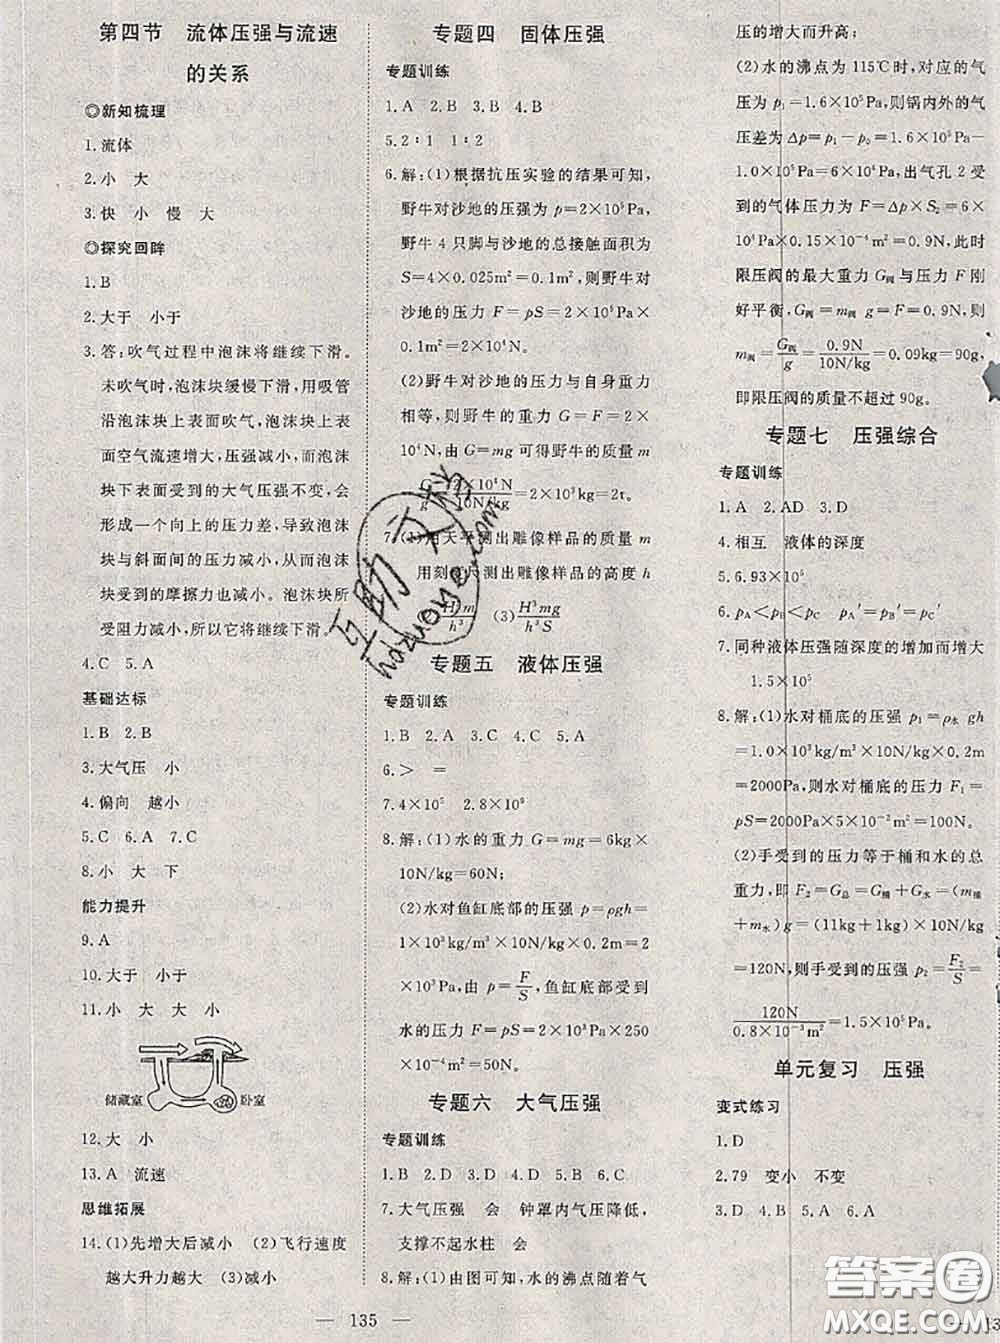 第四节 流体压强与流速
的关系
◎新知梳理
1.流体
2.小 大
3.快 小 慢 大
◎探究回眸
1.B
2.大于 小于
3.答:吹气过程中泡沫将继续下滑。
未吹气时,泡沫块缓慢下滑,用吸管
沿泡沫块上表面吹气,泡沫块上表
面空气流速增大,压强减小,而泡沫
块下表面受到的大气压强不变,会
形成一个向上的压力差,导致泡沫
块与斜面间的压力减小,所以泡沫
块受到的摩擦力也减小。泡沫块所
受阻力减小,所以它将继续下滑。
4.C 5.A
基础达标
1.B 2.B
3.大气压 小
4.偏向 越小
5.C 6.A 7.C
8.小 大 下
能力提升
9.A
10.大于 小于
11.小 大 大 小
储藏室 卧室
12.大 小
13.A 流速
思维拓展
14.(1)先增大后减小 (2)飞行速度
越大升力越大 (3)减小
专题四 固体压强
专题训练
1.A 2.B 3.B 4.B
5.2∶1 1∶2
6.解:(1)根据抗压实验的结果可知,
野牛对沙地的压强为 p=2×10⁵Pa,
野牛 4 只脚与沙地的总接触面积为
S=4×0.025m²=0.1m²,则野牛对
沙地的压力 F=pS=2×10⁵Pa×
0.1m²=2×10⁴N。
(2)野牛对沙地的压力与自身重力
相等,则野牛的重力 G=F=2×
10⁴N,由 G=mg 可得野牛的质量 m
=G/g=2×10⁴N/10N/kg=2×10³kg=2t。
7.(1)用天平测出雕像样品的质量 m
用刻度尺测出雕像样品的高度 h
H³m/h³ (3)H³mg/h³S
专题五 液体压强
专题训练
1.B 2.A 3.C 4.C 5.A
6.> =
7.4×10⁵ 2.8×10⁹
8.解:(1)水的重力 G=mg=6kg×
10N/kg=60N;
(2)水对鱼缸底部的压强 p=ρgh=
1×10³kg/m³×10N/kg×0.2m=2
×10³Pa。由 p=F/S,鱼缸底部受到
水的压力 F=pS=2×10³Pa×250
×10⁻⁴m²=50N。
专题六 大气压强
专题训练
1.B 2.D 3.C 4.D 5.D 6.D
7.大气压强 会 钟罩内气压降低,
支撑不起水柱 会
8.解:(1)由图可知,水的沸点随着气
压的增大而升高;
(2)水的沸点为 115℃时,对应的气
压为 p₁=1.6×10⁵Pa,则锅内外的气
压差为 Δp=p₁-p₀=1.6×10⁵Pa-
1.0×10⁵Pa=6×10⁴Pa,出气孔 2 受
到的气体压力为 F=Δp×S₂=6×
10⁴Pa×0.15×10⁻⁴m²=0.9N,此时
限压阀的最大重力 G阀与压力 F 刚
好平衡,G阀=m阀 g=F=0.9N,则
m阀=G阀/g=0.9N/10N/kg=0.09kg=90g,
即限压阀的质量不超过 90g。
专题七 压强综合
专题训练
1.A 2.AD 3.D
4.相互 液体的深度
5.6.93×10⁵
6.pA<pB<pC pA′=pB′=pC′
7.同种液体压强随深度的增加而增大
1.5×10⁵
8.解:(1)水对桶底的压强 p₁=ρ水 gh
=1.0×10³kg/m³×10N/kg×0.2m
=2000Pa,则水对桶底的压力 F₁=
pS=2000Pa×5×10⁻²m²=100N。
(2)手受到的压力等于桶和水的总
重力,即 F₂=G总=G桶+G水=(m桶
+m水)g=(11kg+1kg)×10N/kg
=120N,则手受到的压强 p₂=F₂/S=
120N/0.8×10⁻³m²=1.5×10⁵Pa。
单元复习 压强
变式练习
1.D
2.79 变小 不变
3.D 4.B 5.A 6.A
— 135 —
互助文档
hdzuoye.com
答案圈
MXQE.COM